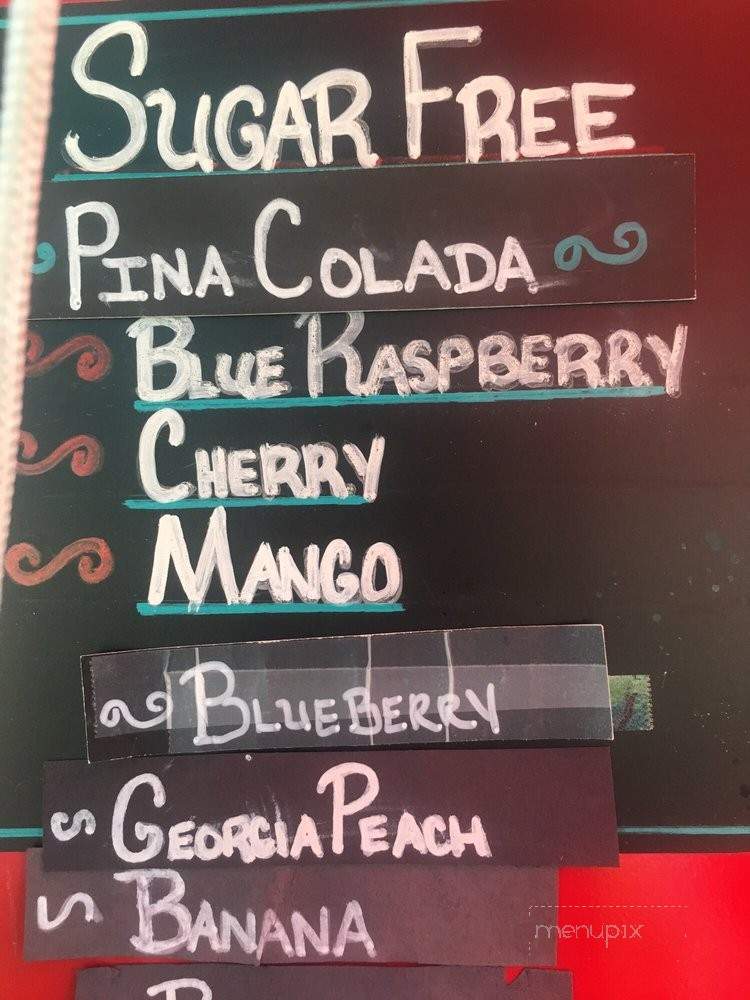 SUGAR FREE
PINA COLADA
BLUE RASPBERRY
CHERRY
MANGO
BLUEBERRY
GEORGIA PEACH
BANANA
menupix